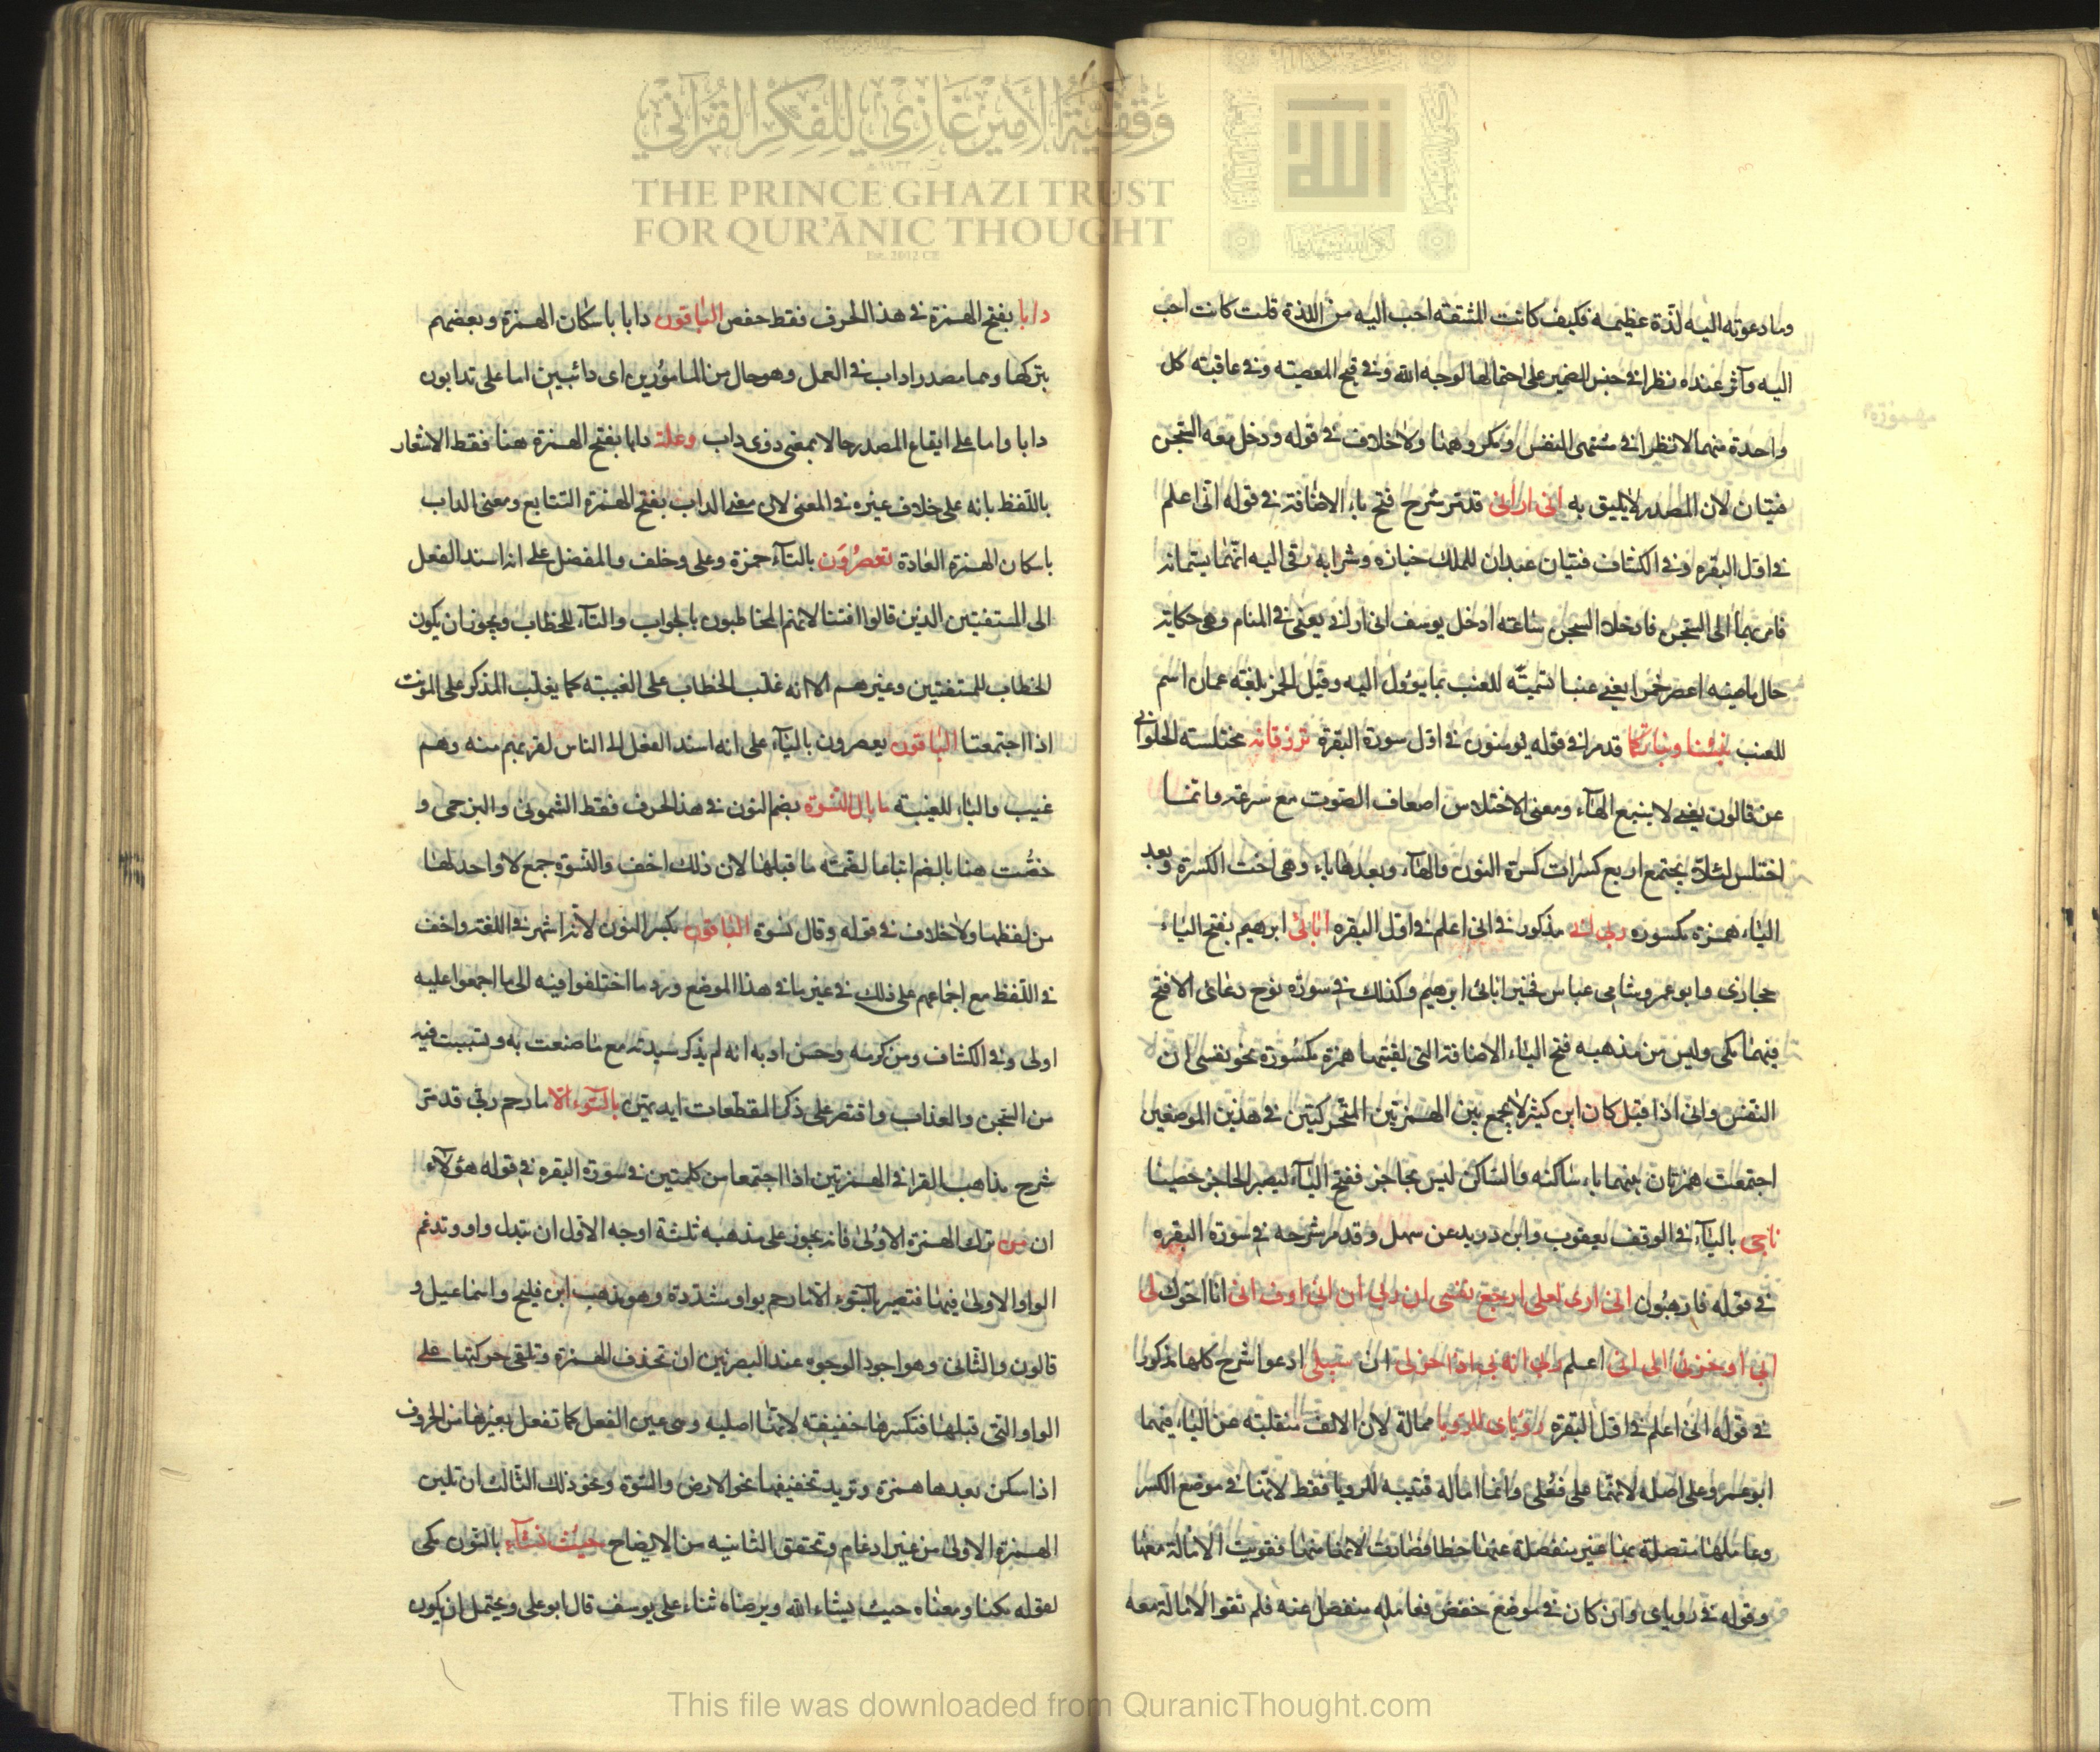 وما دعوته اليه لذة عظيمه فكيف كانت المشقة احب اليه من اللذة قلت كانت احب
اليه وآثر عنده نظرا في حسن الصبر على احتمالها لوجه الله وفي قبح المعصية وفي عاقبة كل
واحدة منهما لا نظرا في مشتهى النفس ومكروهها ولا خلاف في قوله ودخل معه السجن
فتيان لان المصدر لا يليق به انى ارانى قد مر شرح فتح ياء الاضافة في قوله انى اعلم
في اول البقره وفي الكشاف فتيان عبدان للملك خبازه وشرابيه رقى اليه انهما يسمانه
فامر بهما الى السجن فادخلا السجن ساعة ادخل يوسف انى ارانى يعنى في المنام وهى حكاية
حال ماضيه اعصر خمرا يعنى عنبا تسمية للعنب بما يؤول اليه وقيل الخمر بلغة عمان اسم
للعنب نبئنا ونباتكما قد مر في قوله يؤمنون في اول سورة البقرة ترزقانه مختلسة الحلوانى
عن قالون يعنى لا يشبع الهاء ومعنى الاختلاس اضعاف الصوت مع سرعة وانما
اختلس لئلا يجتمع اربع كسرات كسرة النون والهاء وبعدها ياء وهى اخت الكسرة وبعد
الياء همزة مكسوره ربى انى مذكور في انى اعلم في اول البقره ابائى ابرهيم بفتح الياء
حجازى وابو عمرو وشامى عباس مخير ابائى ابرهيم وكذلك في سورة نوح دعائى الا فتح
فيهما مكى وليس من مذهبه فتح الياء الاضافة التى لقيتها همزة مكسورة نحو نفسى ان
النفس وانى اذا قيل كان ابن كثير لا يجمع بين الهمزتين المتحركتين في هذين الموضعين
اجتمعت همزتان بينهما ياء ساكنه والساكن ليس بحاجز ففتح الياء ليصير الحاجز حصينا
ناجى بالياء في الوقف يعقوب وابن دريد عن سهل وقد مر شرحه في سورة البقره
في قوله فارهبون انى ارى لعلى ارجع نفسى ان ربى ان انى اوف انى انا اخوك لى
ابى او حزنى الى انى اعلم ربى انه بى اذ اخرجنى ان سبيلى ادعوا شرح كلها مذكور
في قوله انى اعلم في اول البقرة رؤياى للرويا ممالة لان الالف منقلبة عن الياء فيهما
ابو عمرو على اصله لانها على فعلى وانما امالة قتيبه للرويا فقط لانها في موضع الكسر
وعاملها متصلة بها غير منفصلة عنها خطا فصارت كانها منها فقويت الامالة معها
وقوله في روياى وان كان في موضع خفض فعامله منفصل عنه فلم تقوا الامالة معه
دابا بفتح الهمزة في هذا الحرف فقط حفص الباقون دابا باسكان الهمزة وبعضهم
بتركها وهما مصدر اداب في العمل وهو حال من المامورين اى دائبين اما على تدابون
دابا واما على ايقاع المصدر حالا بمعنى ذوى داب وعلة دابا بفتح الهمزة هنا فقط الاشعار
باللفظ بانه على خلاف غيره في المعنى لان معنى الداب بفتح الهمزة التتابع ومعنى الداب
باسكان الهمزة العادة تعصرون بالتاء حمزة وعلى وخلف والمفضل على انه اسند الفعل
الى المستفتين الذين قالوا افتنا لانهم المخاطبون بالجواب والتاء للخطاب ويجوز ان يكون
الخطاب للمستفتين وغيرهم الا انه غلب الخطاب على الغيبة كما يغلب المذكر على المونث
اذا اجتمعتا الباقون يعصرون بالياء على انه اسند الفعل الى الناس لقربهم منه وهم
غيب والياء للغيبة ما بال النسوة بضم النون في هذا الحرف فقط الشمونى والبرجمى و
خصت هنا بالضم اتباعا لضمة ما قبلها لان ذلك اخف والنسوة جمع لا واحد لها
من لفظها ولا خلاف في قوله وقال نسوة الباقون بكسر النون لانه اشهر في اللغة واخف
في اللفظ مع اجماعهم على ذلك في غير ما في هذا الموضع ورد ما اختلفوا فيه الى ما اجمعوا عليه
اولى وفي الكشاف ومن كرمه وحسن ادبه انه لم يذكر سيدته مع ما صنعت به وتسببت فيه
من السجن والعذاب واقتصر على ذكر المقطعات ايديهن بالسوء الا ما رحم ربى قد مر
شرح مذاهب القرا في الهمزتين اذا اجتمعا من كلمتين في سورة البقره في قوله هؤلاء
ان من ترك الهمزة الاولى فانه يجوز على مذهبه ثلثة اوجه الاول ان تبدل واو وتدغم
الواو الاولى فيها فتصير بالسوء الا ما رحم بواو مشددة وهو مذهب ابن فليح واسماعيل و
قالون والثانى وهو اجود الوجوه عند البصريين ان تحذف الهمزة وتلقى حركتها على
الواو التى قبلها فتكسرها خفيفة لانها اصليه وهى عين الفعل كما تفعل بغيرها من الحروف
اذا سكن بعدها همزة وتريد تخفيفها نحو الارض والسوة ونحو ذلك الثالث ان تلين
الهمزة الاولى من غير ادغام وتحقق الثانيه من الايضاح حيث نشاء بالنون مكى
لقوله مكنا ومعناه حيث يشاء الله ويرضاه ثناء على يوسف قال ابو على ويحتمل ان يكون
وقفية الأمير غازي للفكر القرآني
THE PRINCE GHAZI TRUST
FOR QUR'ĀNIC THOUGHT
Est. 2012 CE
This file was downloaded from QuranicThought.com